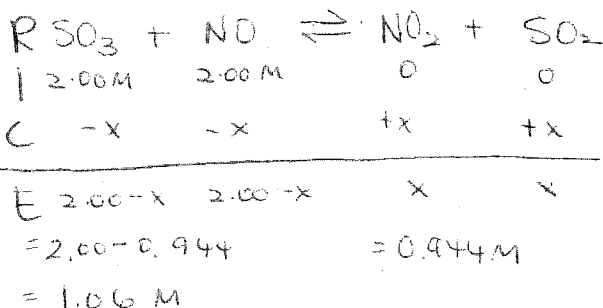 R SO₃ + NO ⇌ NO₂ + SO₂
I 2.00M 2.00M 0 0
C -x -x +x +x
E 2.00-x 2.00-x x x
=2.00-0.944 =0.944M
=1.06 M